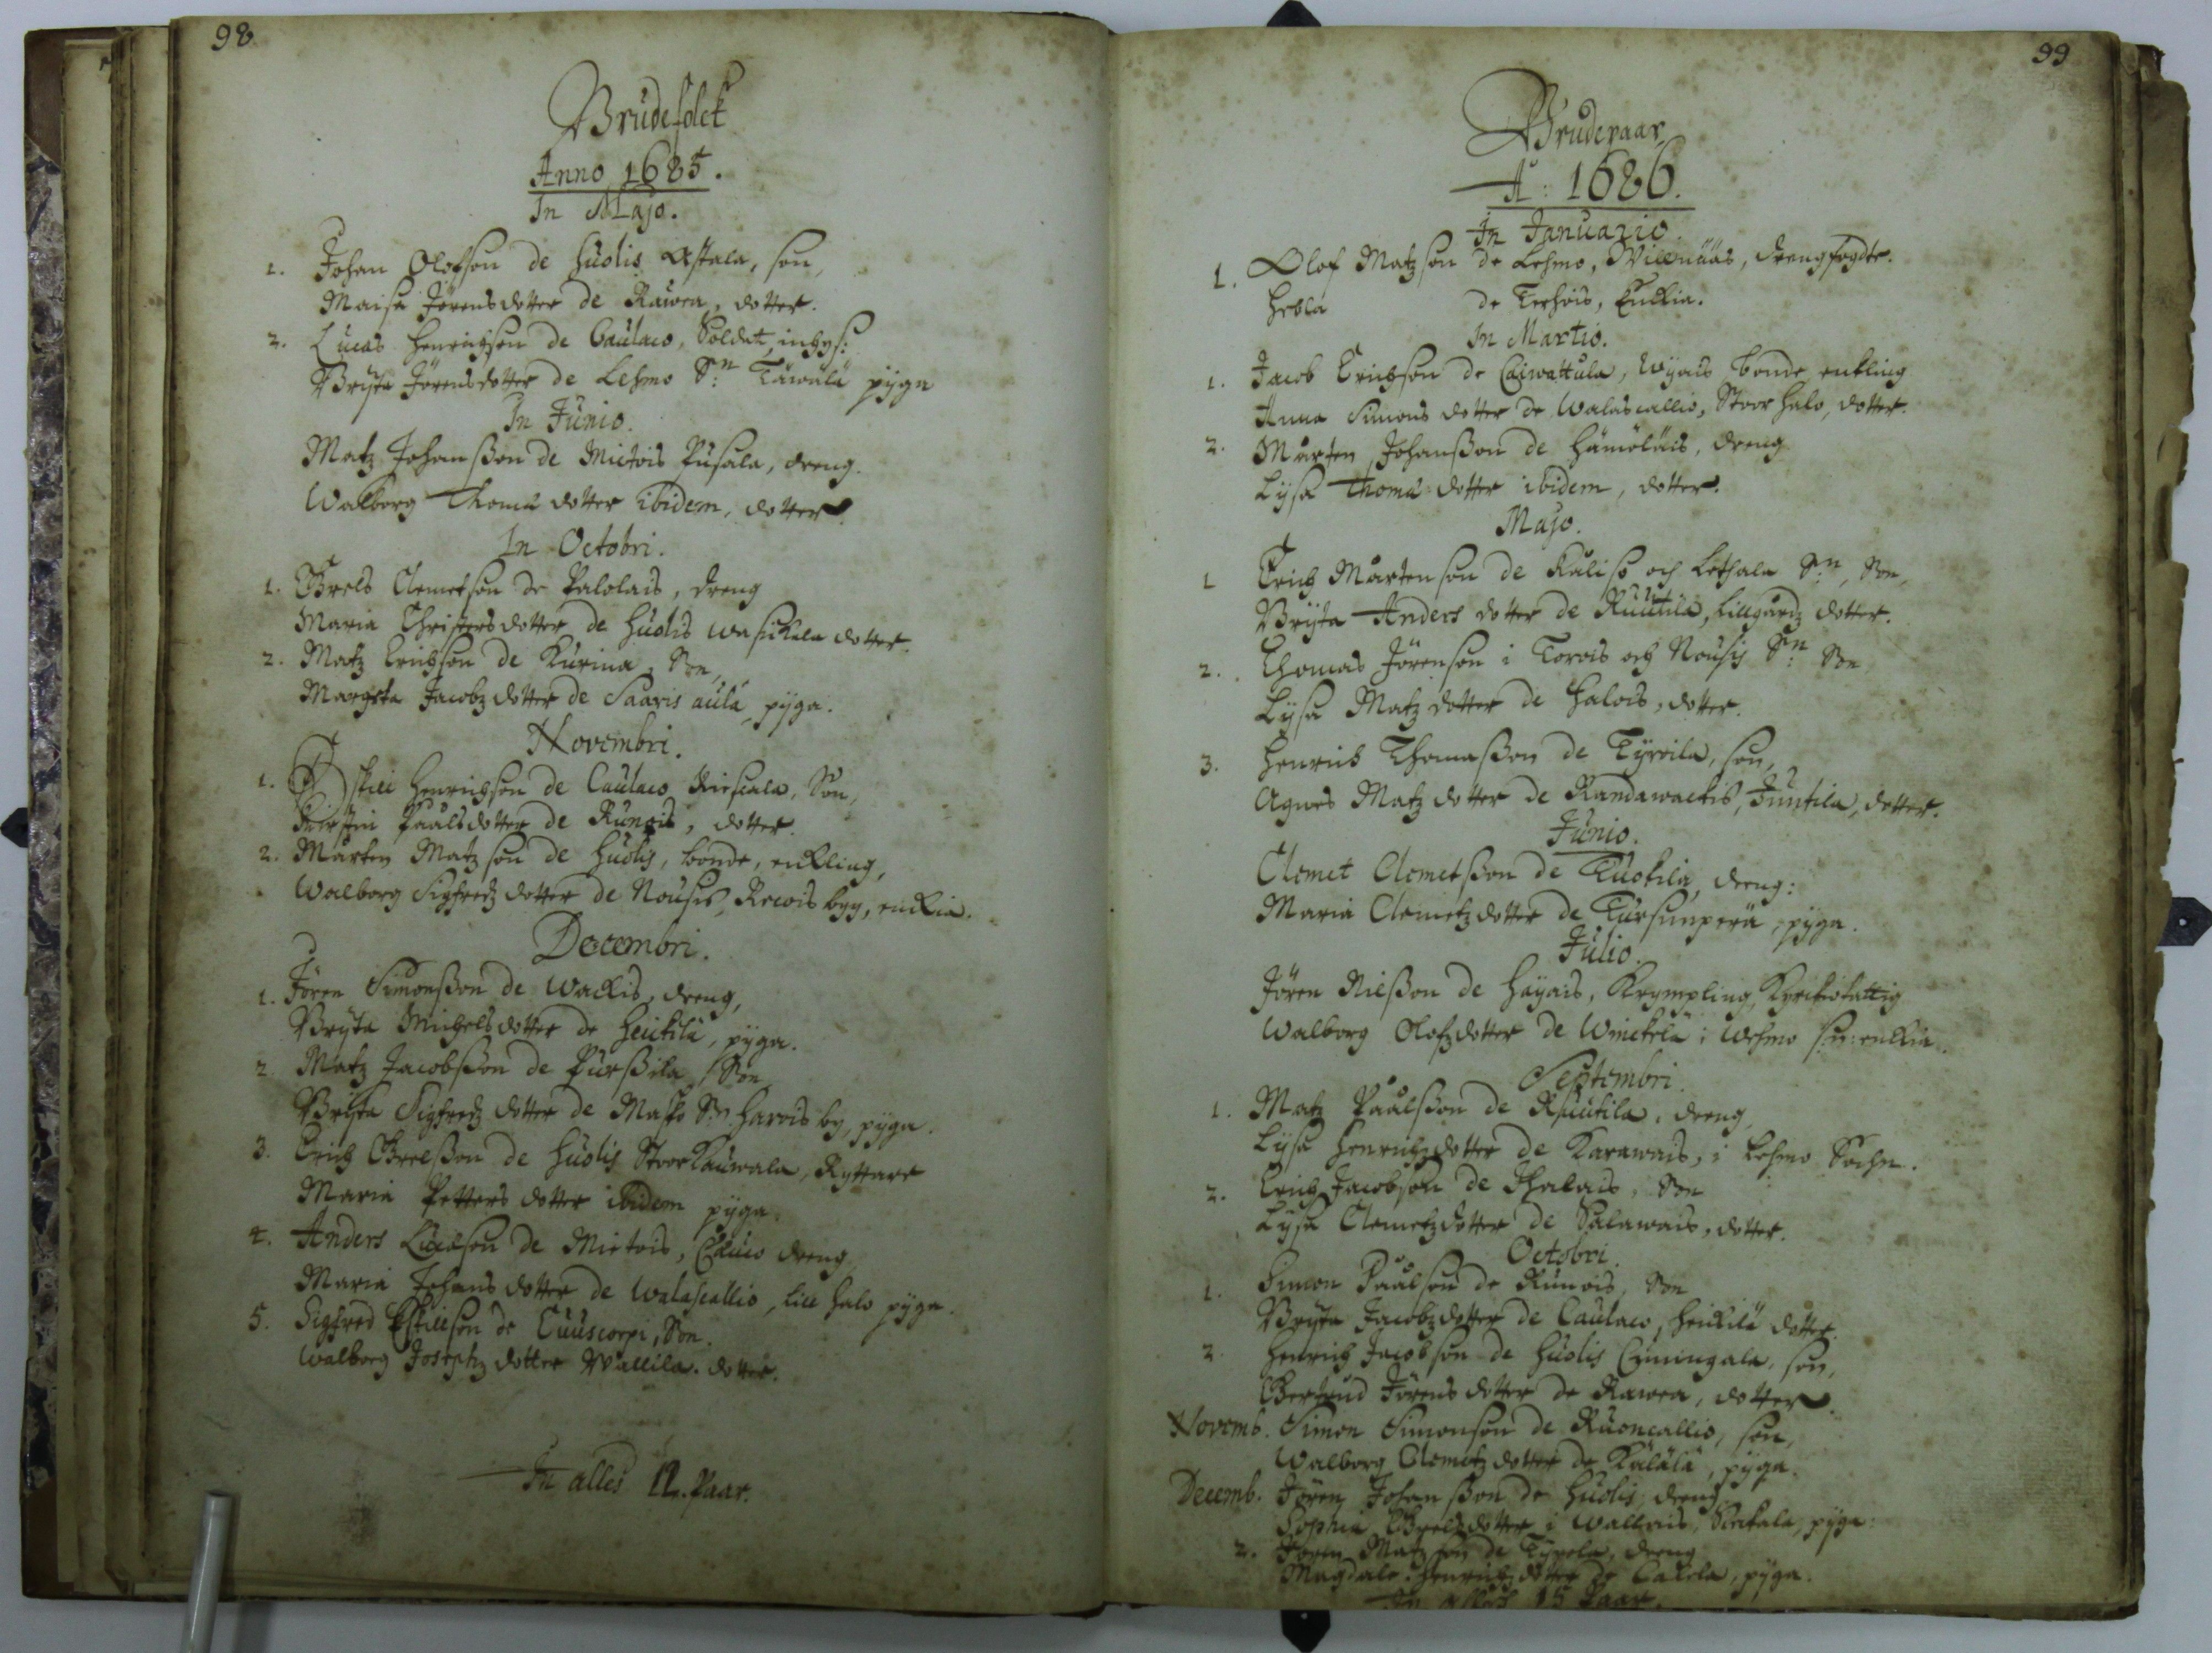 98
Brudefolck
Anno 1685.
In Majo.
1. Johan Olofson de Huolis Astala, son,
Maisa Jörensdotter de Kåwra, dotter.
2. Lucas Henrichson de Caulaco, Soldat, inhys:
Bryta Jörensdotter de Lehmo Sn: Täwälä pyga
In Junio.
Matz Johansson de Mietois Pusala, dreng.
Walborg Thomæ dotter ibidem, dotter.
In Octobri.
1. Brels Clemetson de Palolais, dreng
Maria Christersdotter de Huolis Wasikkala dotter.
2. Matz Erichson de Kurina, Son,
Margeta Jacobz dotter de Saaris aula, pyga.
Novembri.
1. Eskill Henrichson de Caulaco Kirscala, Son,
Kirstin Påålsdotter de Runois, dotter.
2. Mårten Matz son de Huolis, bonde, enckling,
Walborg Sigfredz dotter de Nousis, Rewois byy, enckia.
Decembri.
1. Jören Simonsson de Wackis, dreng,
Bryta Michelsdotter de Heickilä, pyga.
2. Matz Jacobsson de Purssila, Son,
Brijta Sigfredz dotter de Masko Sn Harois by, pyga.
3. Erich Brelsson de Huolis Stoor Kauwala, Ryttare
Maria Petters dotter ibidem pyga.
4. Anders Lucæson de Mietois, Cauco dreng
Maria Johansdotter de Walascallio, Lill halo pyga.
5. Sigfred Eskillson de Cuuscorpi, Son.
Walborg Josephz dotter Wallila. dotter.
In alles 12. Paar.
99
Brudepaar
A: 1686.
In Januario.
1. Olof Matzson de Lehmo, Willnääs, drengfogdte.
Hebla de Terhois, Enckia.
In Martio.
1. Jacob Erichson de Caiwattula, Wyais bonde enkling
Anna Simons dotter de Walascallio, Stoor halo, dotter.
2. Mårten Johansson de Hämöläis, dreng
Lysa Thomæ dotter ibidem, dotter.
Majo.
1 Erich Mårtenson de Kaliso och Lethala Sn, Son,
Bryta Anders dotter de Ruutila, Lillgårdz dotter.
2. Thomas Jörenson i Torois och Nousis Sn: Son
Lysa Matz dotter de Halois, dotter.
3. Henrich Thomasson de Tyrvila, son,
Agnes Matz dotter de Randawackis, Juntila, dotter.
Junio.
Clemet Clemetsson de Tuokila, dreng:
Maria Clemetz dotter de Tursunperä, pyga.
Julio.
Jören Nilsson de Hayais, Krympling, Kyrkiofattig
Walborg Olofzdotter de Winckelä i Wehmo sn: enckia.
Septembri.
1. Matz Påålsson de Ruutila, dreng,
Lysa Henrichzdotter de Karawais, i Lehmo Sochn.
2. Erich Jacobson de Thalais, Son
Lysa Clemetzdotter de Salawais, dotter.
Octobri.
1. Simon Påålson de Runois, Son
Bryta Jacobzdotter de Caulaco, Heickilä dotter.
2. Henrich Jacobson de Huolis Cuningala, son,
Gertrud Jörens dotter de Kawra, dotter.
Novemb. Simon Simonson de Ruoncallio, son,
Walborg Clemetz dotter de Kälälä, pyga.
Decemb. Jören Johansson de Huolis, dreng
Sophia Brelsdotter i Wallais, Sickala, pyga.
2. Jören Matzson de Tyrola, dreng
Magdale: Henrichz dotter de Cakola, pyga.
In alles 15 Paar.